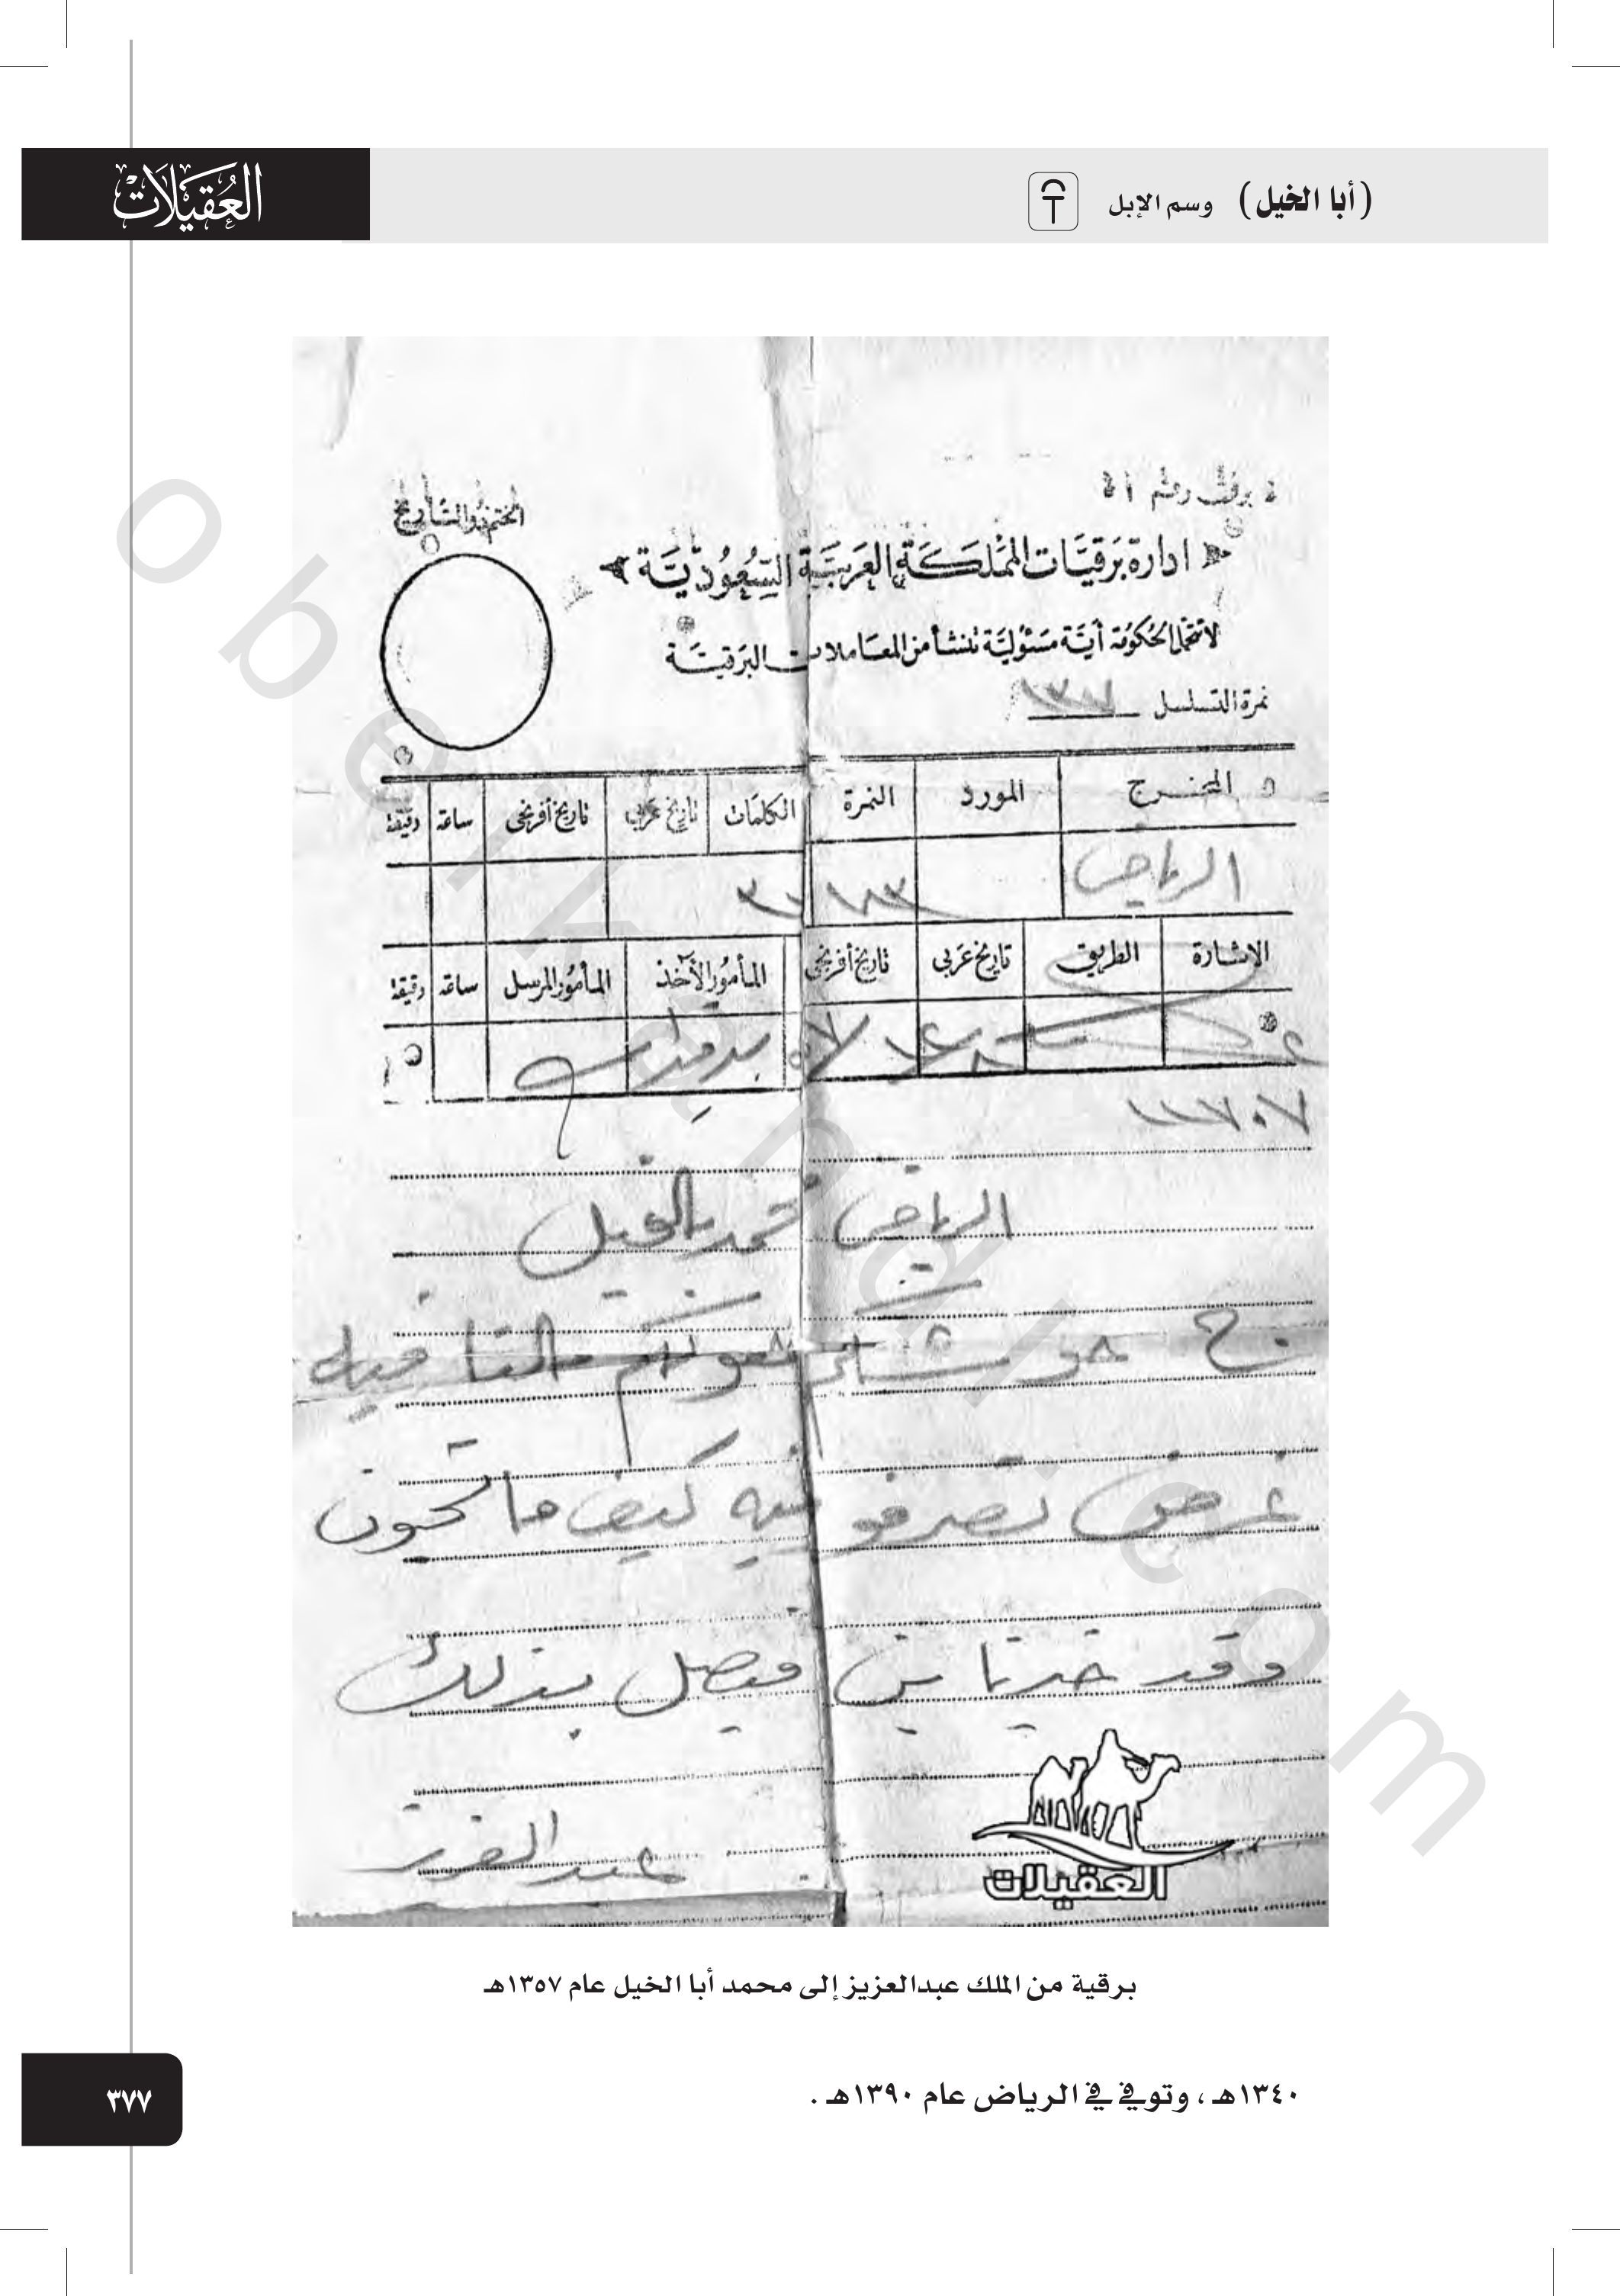 (أبا الخيل) وسم الإبل
العقيلات
برقية رقم
الختم والتاريخ
ادارة برقيات المملكة العربية السعودية
لا تتحمل الحكومة أية مسئولية تنشأ من المعاملات البرقية
نمرة التسلسل
المخرج المورد النمرة الكلمات تاريخ عربي تاريخ أفرنجي ساعة دقيقة
الرياض
الاشارة الطريق تاريخ عربي تاريخ أفرنجي المأمور الآخذ المأمور المرسل ساعة دقيقة
الرياض محمد
ج
غرض تصرفو فيه كيف ما تحبون
وقد خبرنا بن فيصل بذلك
عبد العزيز
العقيلات
برقية من الملك عبدالعزيز إلى محمد أبا الخيل عام ١٣٥٧هـ
١٣٤٠هـ ، وتوفي في الرياض عام ١٣٩٠هـ .
٣٧٧
obeikandl.com